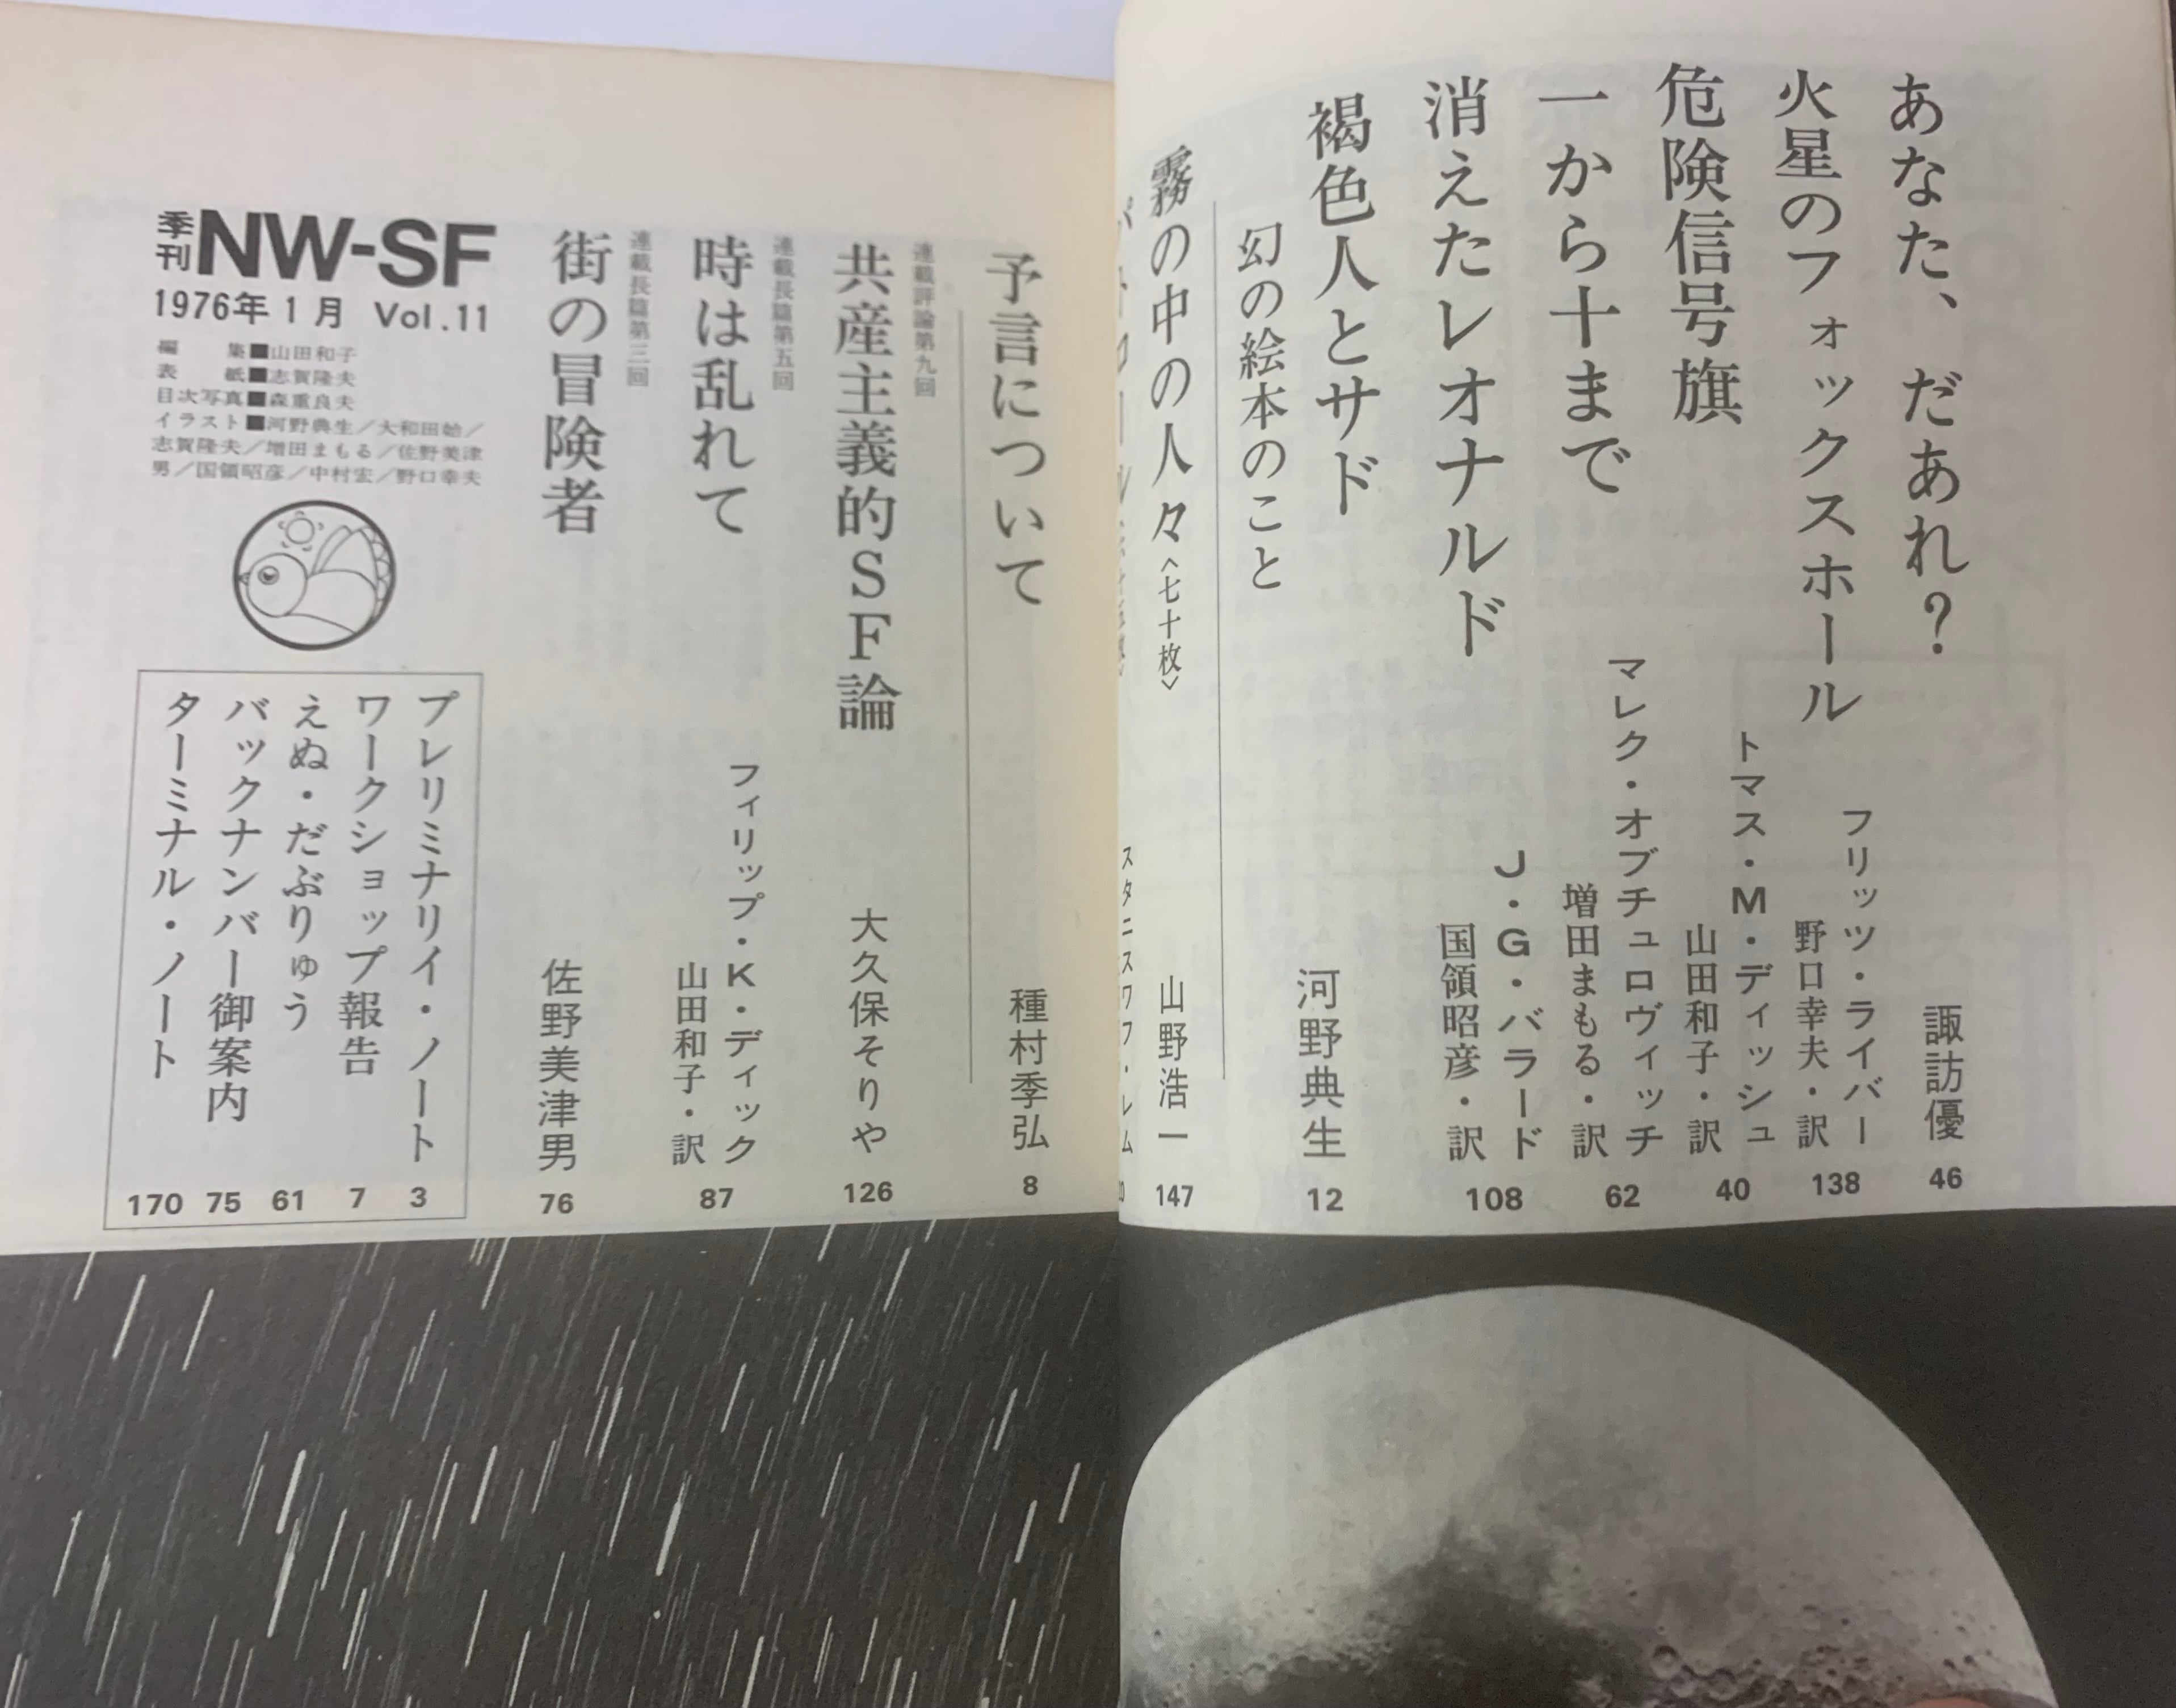 あなた、だあれ?
諏訪優
46
火星のフォックスホール
フリッツ・ライバー
野口幸夫・訳
138
危険信号旗
トマス・M・ディッシュ
山田和子・訳
40
一から十まで
マレク・オブチュロヴィッチ
増田まもる・訳
62
消えたレオナルド
J・G・バラード
国領昭彦・訳
108
褐色人とサド
幻の絵本のこと
河野典生
12
霧の中の人々〈七十枚〉
山野浩一
147
パトロール
スタニスワフ・レム
予言について
種村季弘
8
連載評論第九回
共産主義的SF論
大久保そりや
126
連載長篇第五回
時は乱れて
フィリップ・K・ディック
山田和子・訳
87
連載長篇第三回
街の冒険者
佐野美津男
76
季刊NW-SF
1976年1月 Vol.11
編 集■山田和子
表 紙■志賀隆夫
目次写真■森重良夫
イラスト■河野典生/大和田始/
志賀隆夫/増田まもる/佐野美津
男/国領昭彦/中村宏/野口幸夫
プレリミナリイ・ノート
3
ワークショップ報告
7
えぬ・だぶりゅう
61
バックナンバー御案内
75
ターミナル・ノート
170